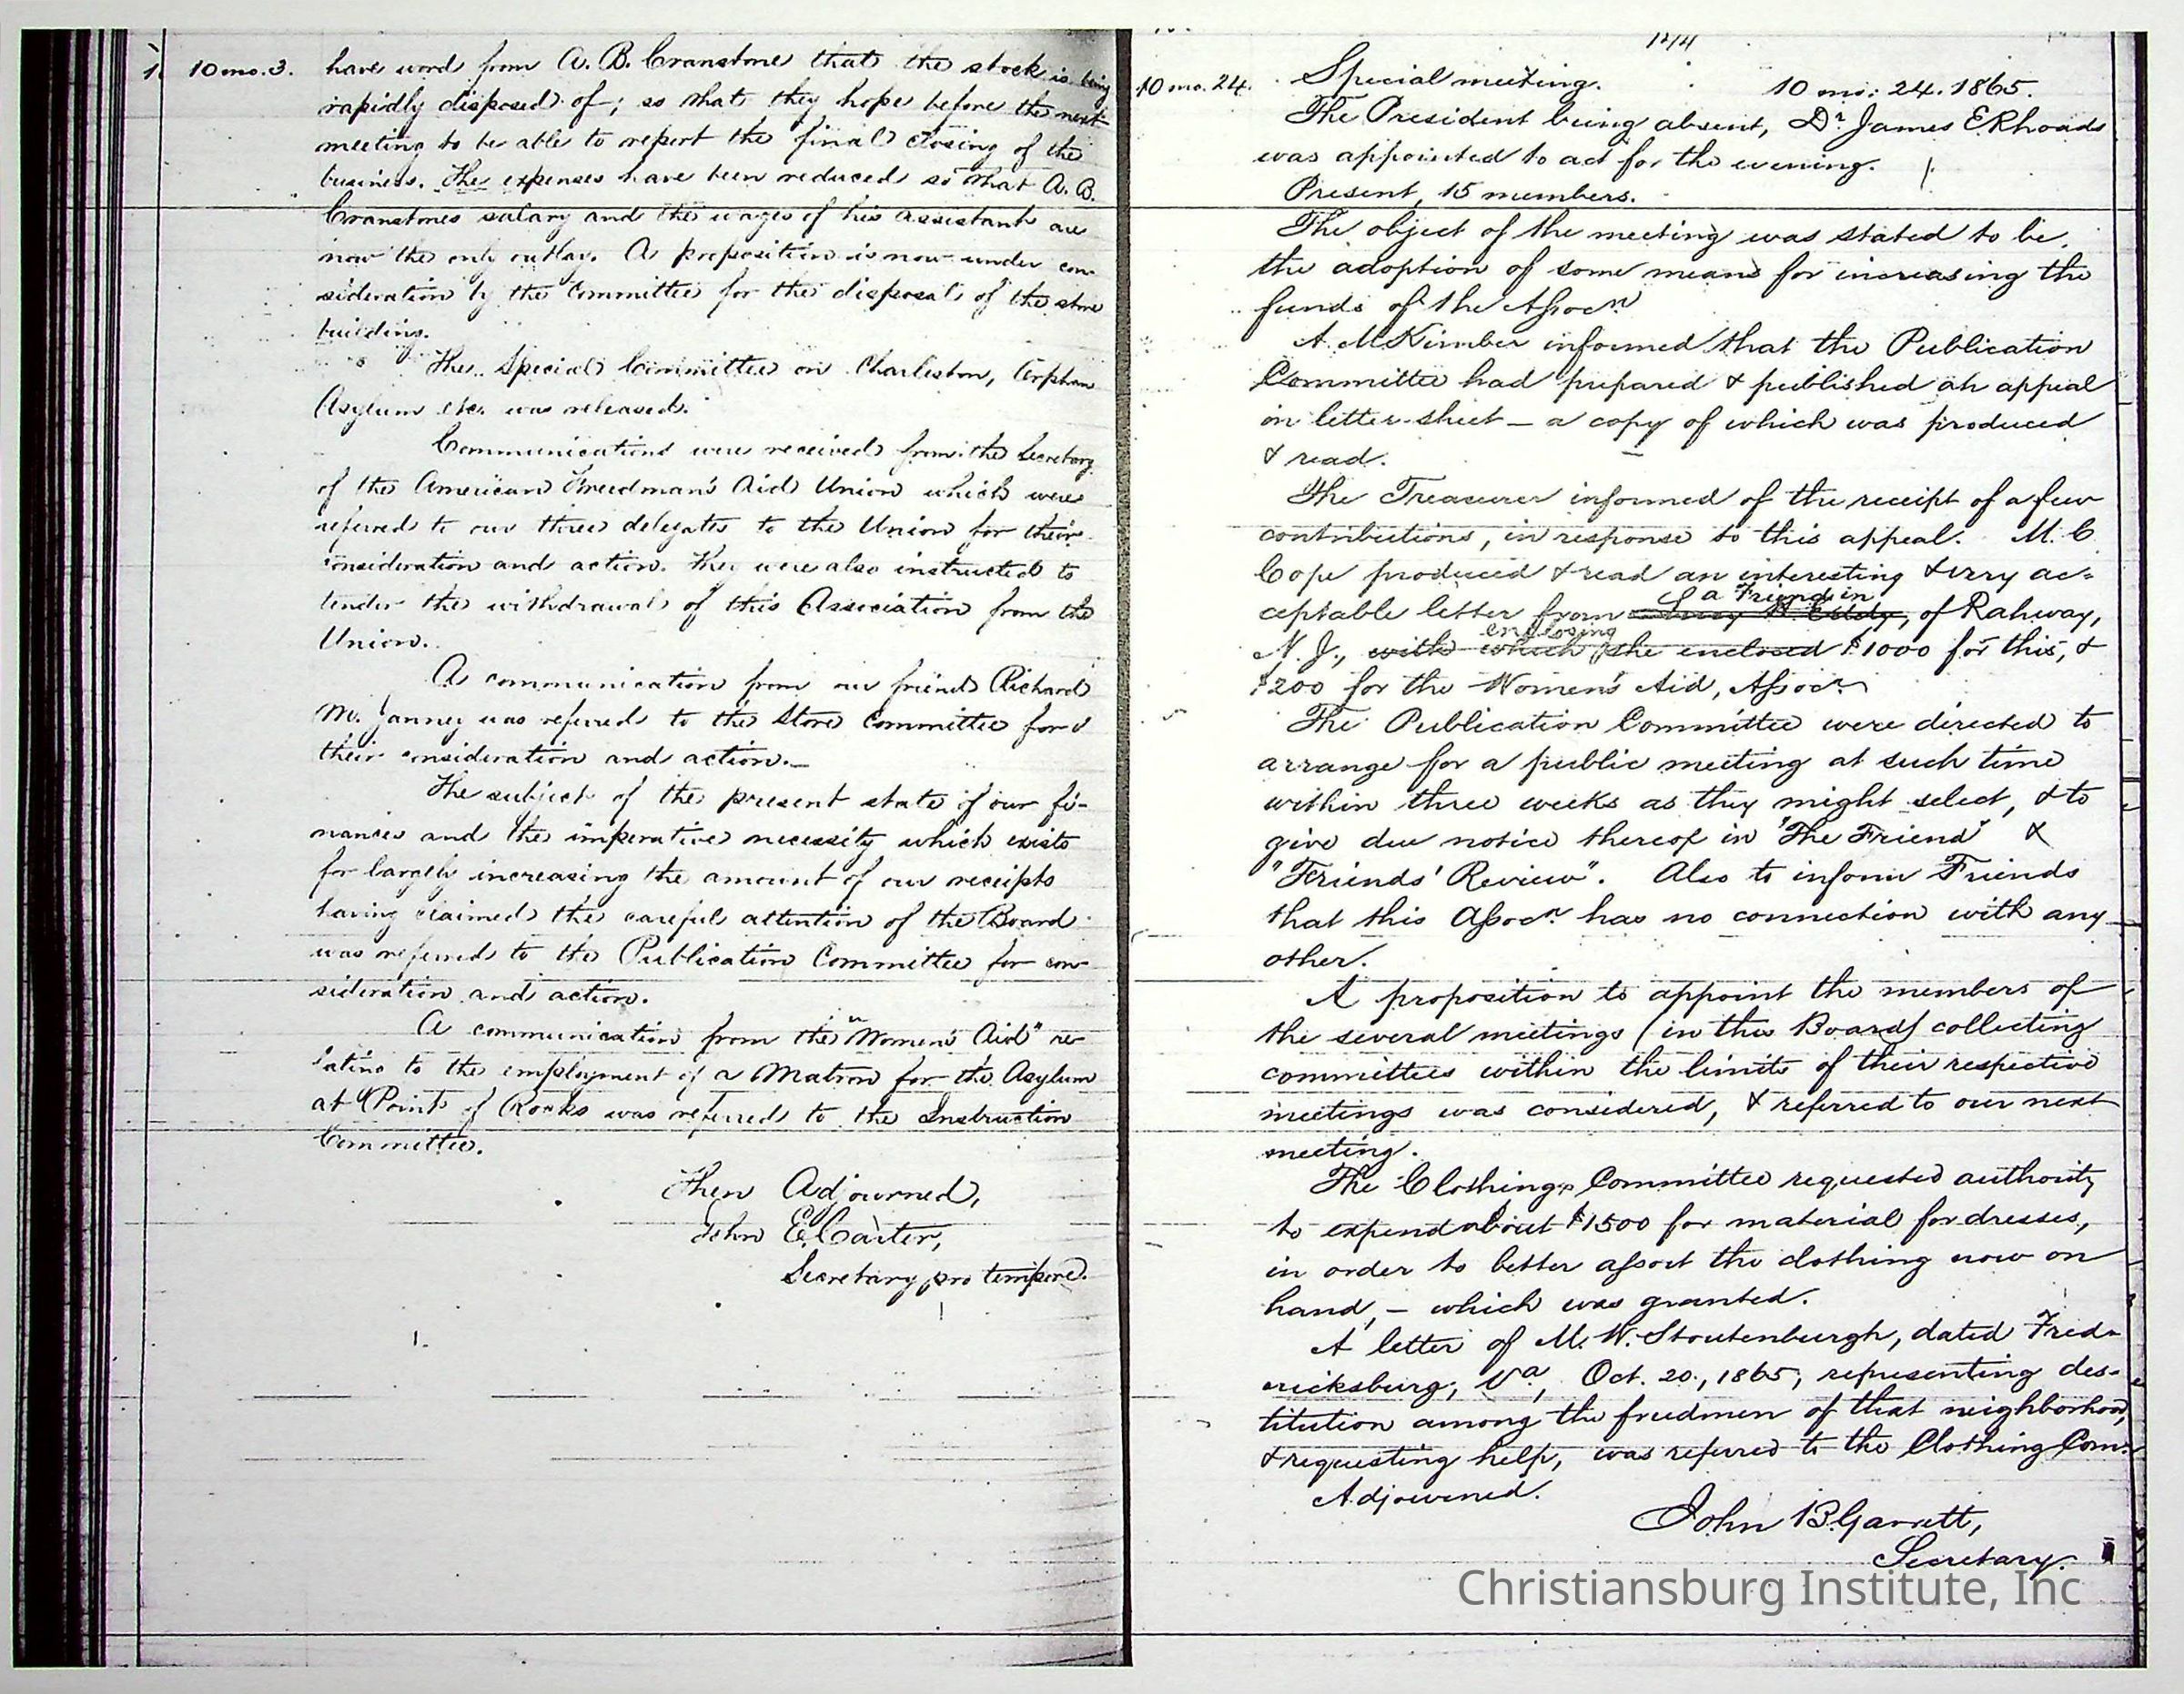 1. 10 mo. 3. have word from A. B. Cranstone that the stock is being
rapidly disposed of; so that they hope before the next
meeting to be able to report the final closing of the
business. The expenses have been reduced so that A. B.
Cranstones salary and the wages of his assistant are
now the only outlay. A proposition is now under con-
sideration by the Committee for the disposal of the store
building.
The Special Committee on Charleston, Orphan
Asylum etc. was released.
Communications were received from the Secretary
of the American Freedman's Aid Union which were
referred to our three delegates to the Union for their
consideration and action. They were also instructed to
tender the withdrawal of this Association from the
Union.
A communication from our friend Richard
M. Janney was referred to the Store Committee for
their consideration and action.—
The subject of the present state of our fi-
nances and the imperative necessity which exists
for largely increasing the amount of our receipts
having claimed the careful attention of the Board
was referred to the Publication Committee for con-
sideration and action.
A communication from the "Women's Aid" re-
lating to the employment of a Matron for the Asylum
at Point of Rocks was referred to the Instruction
Committee.
Then Adjourned,
John E. Carter,
Secretary pro tempore.
10 mo. 24. Special meeting. 10 mo: 24. 1865.
The President being absent, Dr. James E. Rhoads
was appointed to act for the evening.
Present, 15 members.
The object of the meeting was stated to be,
the adoption of some means for increasing the
funds of the Assocn
A. M. Kimber informed that the Publication
Committee had prepared & published an appeal
in letter-sheet — a copy of which was produced
& read.
The Treasurer informed of the receipt of a few
contributions, in response to this appeal. M. C.
Cope produced & read an interesting & very ac=
a Friend in
ceptable letter from Eddy, of Rahway,
enclosing
N. J., with which she enclosed $1000 for this, &
$200 for the Women's Aid, Assocn.
The Publication Committee were directed to
arrange for a public meeting at such time
within three weeks as they might select, & to
give due notice thereof in "The Friend" &
"Friends' Review". Also to inform Friends
that this Assocn. has no connection with any
other.
A proposition to appoint the members of
the several meetings (in this Board) collecting
committees within the limits of their respective
meetings was considered, & referred to our next
meeting.
The Clothing Committee requested authority
to expend about $1500 for material for dresses,
in order to better assort the clothing now on
hand, — which was granted.
A letter of M. W. Stoutenburgh, dated Fred-
ericksburg, Va., Oct. 20, 1865, representing des-
titution among the freedmen of that neighborhood,
& requesting help, was referred to the Clothing Com.
Adjourned.
John B. Garrett,
Secretary.
Christiansburg Institute, Inc